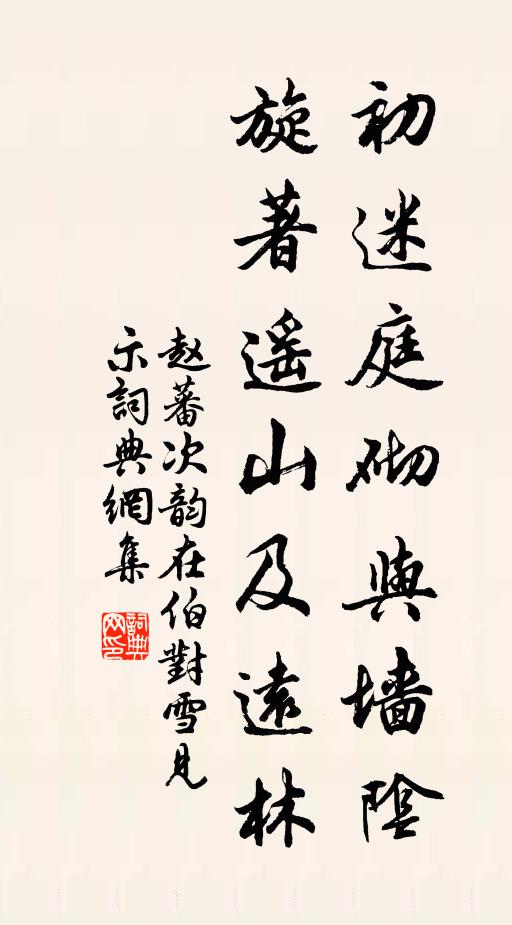 初迷庭砌與墻陰
旋著遥山及遠林
赵蕃次韵在伯對雪見
示詞典網集
詞典
网印